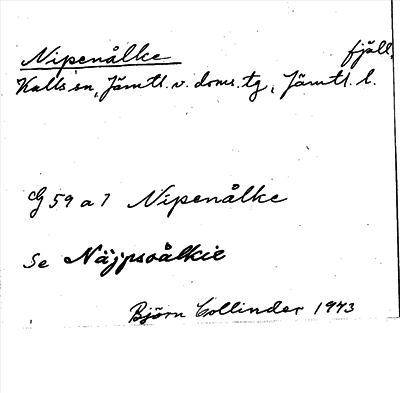 Nipenålke fjäll,
Kalls sn, Jämtl. v. doms. tg, Jämtl. l.
G 59 a 7 Nipenålke
Se Näjpsoålkie
Björn Collinder 1943